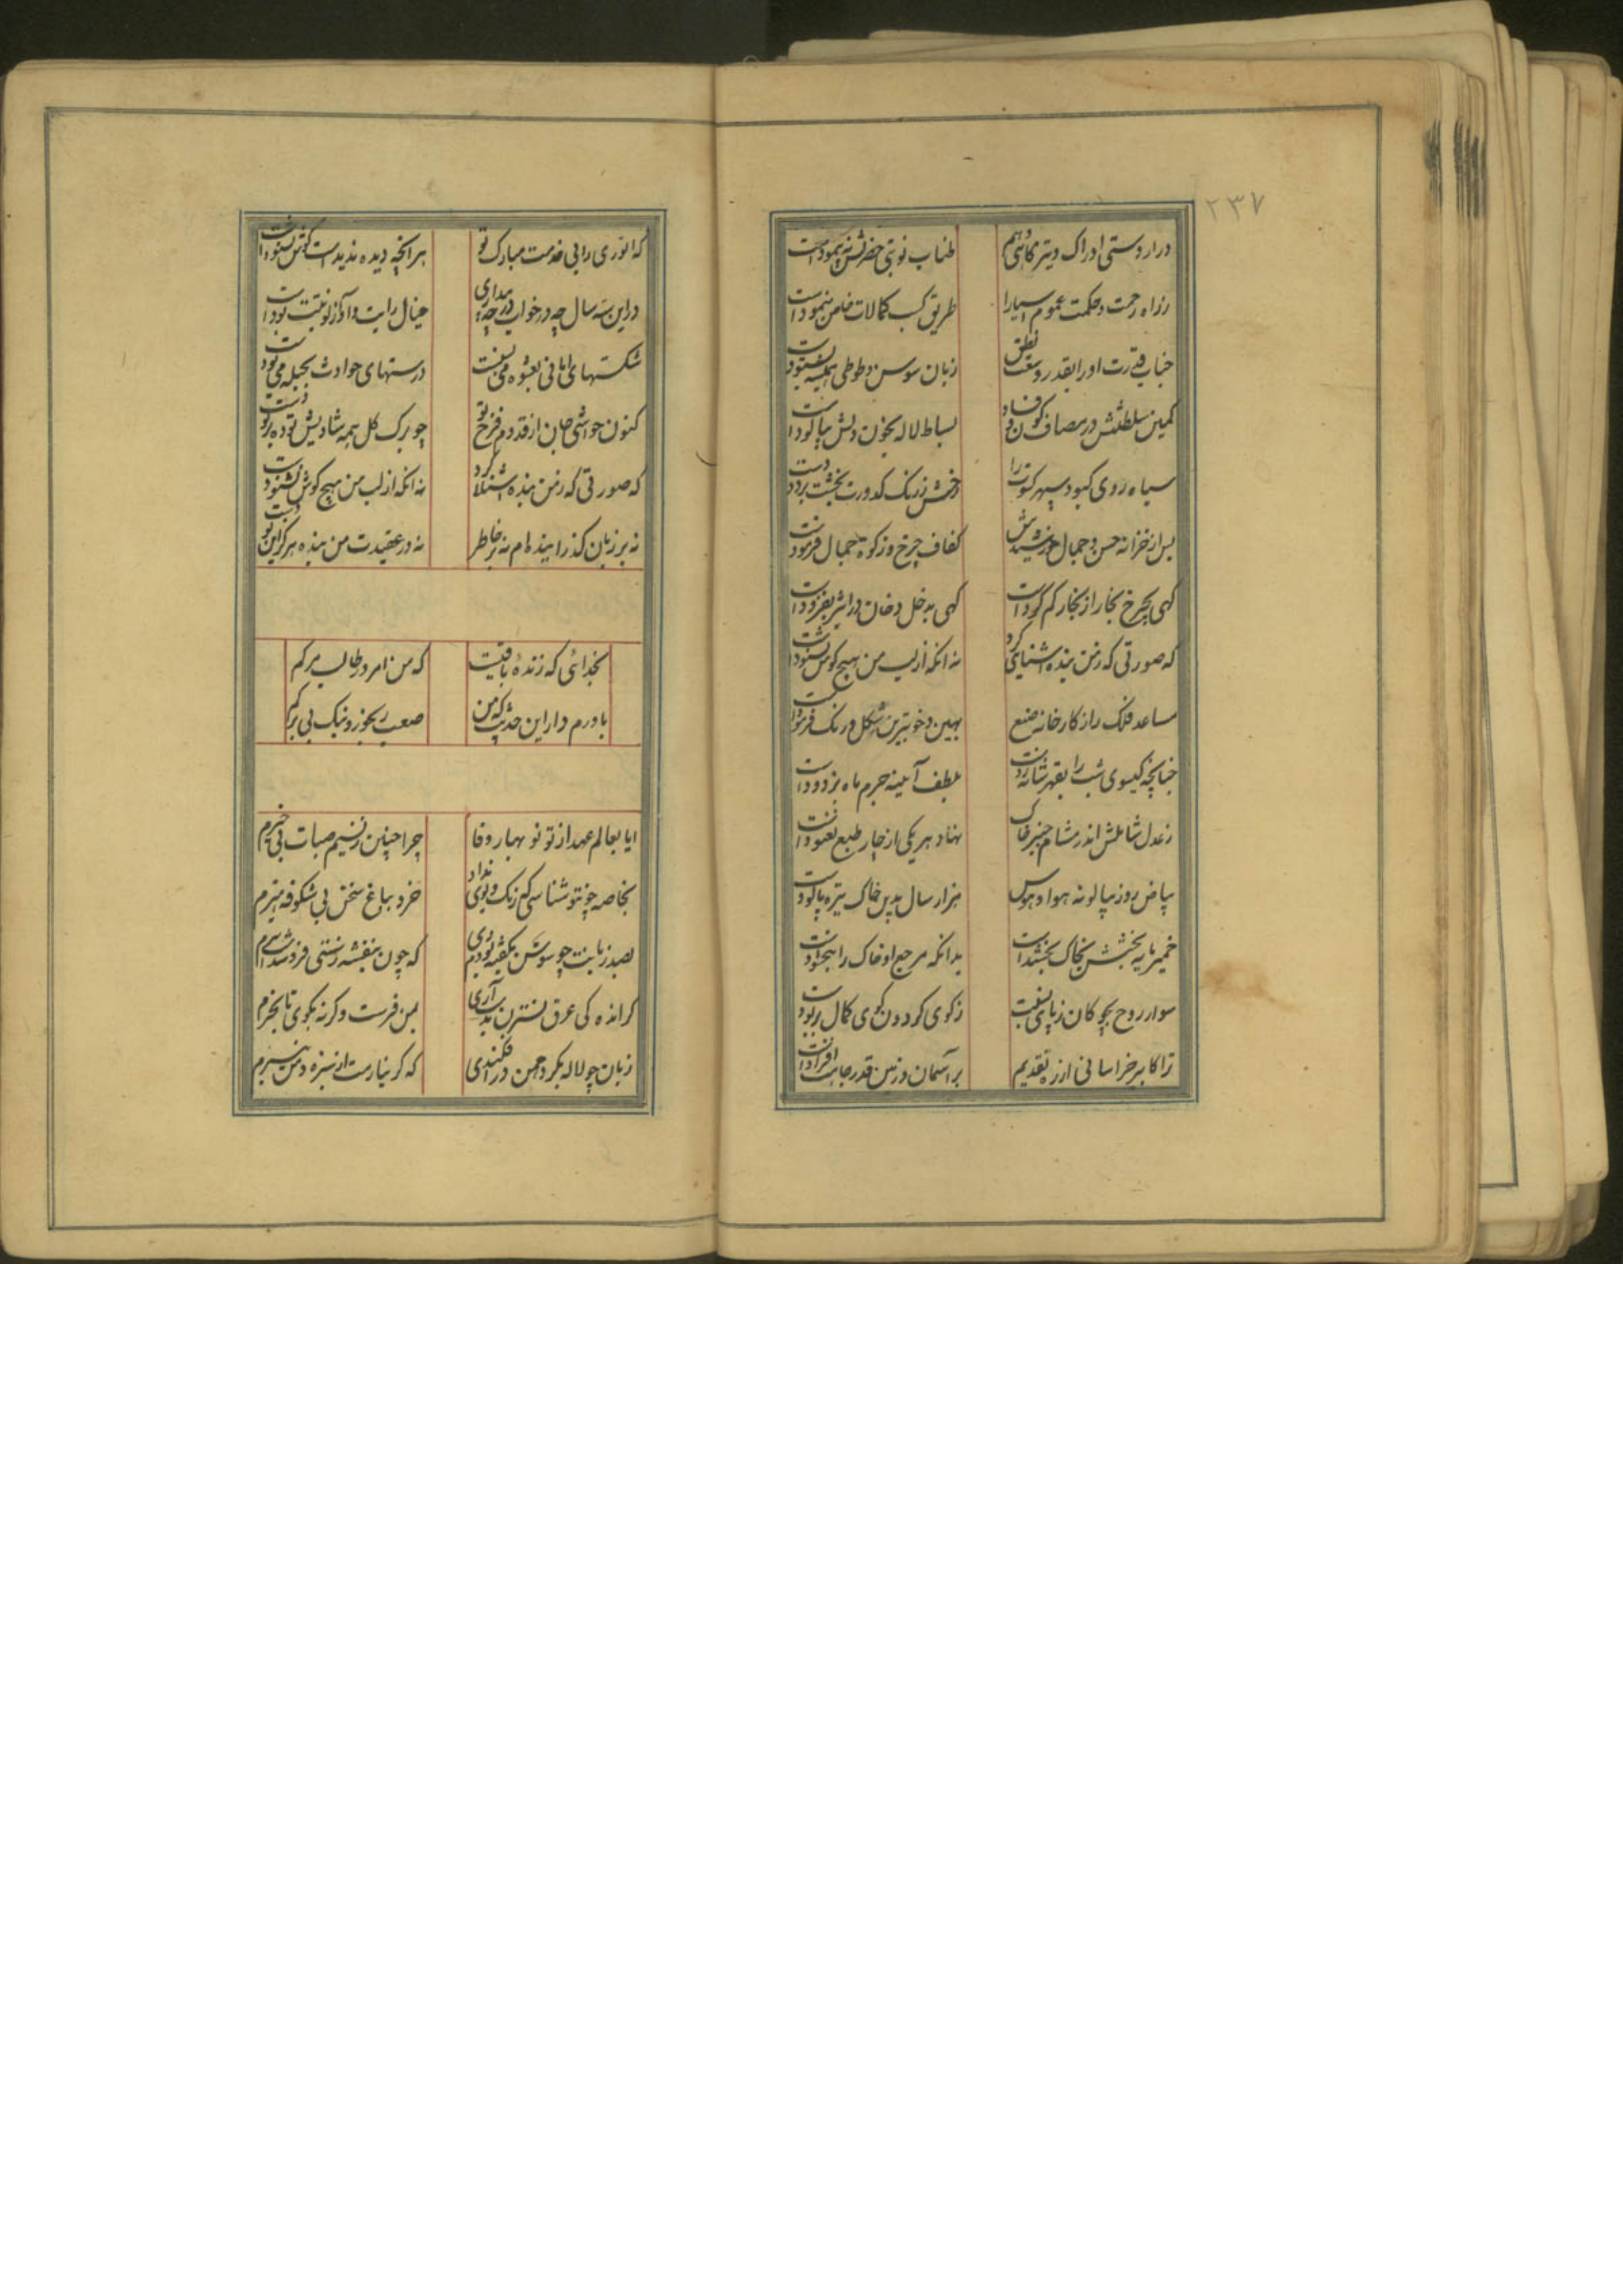 ۲۳۷
دراز دستی ادراک و تیز گامی وهم طناب نوبتی حضرتش نپیموداست
ز راه رحمت و حکمت عموم اسیارا طریق کسب کمالات خاص بنموداست
جناب قدرت او را بقدر وسعت نطق زبان سوسن و طوطی همیشه بستوداست
کمین سلطنتش در مصاف کون و فساد بساط لاله بخون دلش بیالوداست
سیاه روی کبود سپهر کوژ را رخش ز زنگ کدورت بخشت بزدوداست
پس از خزانه حسن و جمال خورشیدش کفاف چرخ و زکوة جمال فرموداست
گهی بچرخ بخار از بخار کم کرداست گهی به خل دخان در اثیر بفزوداست
که صورتی که ز من بنده اشنایی کرد نه انکه از لب من هیچ گوش نشنوداست
مساعد فلک را ز کارخانه صنع بهین و خوبترین شکل و رنگ فرموداست
چنانچه گیسوی شب را بقهر شانه زدست بلطف آینه جرم ماه بزدوداست
ز عدل شاملش اندر مشام چنبر خاک نهاد هر یکی از چار طبع نغنوداست
بیاض روز بپالونه هوا و هوس هزار سال بدین خاک تیره پالوداست
خمیر مایه بخشش بخاک بخشیداست بدانکه مرجع او خاک را ببخشوداست
سوار روح بچوگان ز پای نفست ز کوی گردون گوی کمال ربوداست
ترا کابر خراسانی از ره تقدیم بر آسمان و زمین قدر و جاهت افزوداست
که انوری را بی خدمت مبارک تو هر انچه دیده ندیدست گوش بشنوداست
در این سه سال چه در خواب و چه در بیداری خیال رایت و آواز نوبتت بوداست
شکستهای امانی بعشوه می بست درستهای حوادث بحیله می بود
کنون حواشی جان از قدوم فرخ تو چو برگ گل همه شادیش توده بر توده است
که صورتی که ز من بنده اشنلا کرد نه انکه از لب من هیچ گوش نشنود است
نه بر زبان گذرانیده ام نه بر خاطر نه در عقیدت من بنده هرگز این بوداست
بخدائی که زندهٔ باقیست که من امروز طالب مرگم
باورم دار این حدیث که من صعب رنجور و نیک بی برگم
ایا بعالم عهد از تو نو بهار وفا چرا چنین ز نسیم صبات بی خبرم
بخاصه چو تو شناسی که رنگ و بوی نداد خرد بباغ سخن بی شکوفه هنرم
بصد زبانت چو سوسن بگفته بودم دی که چون بنفشه ز سستی فرو شده سرم
کرانده کی عرق نسترن بدست آری بمن فرست و گرنه بگوی تا بخرم
زبان چو لاله بگرد دهن در افکندی که کر نیارمت از سبزه دمن سپرم